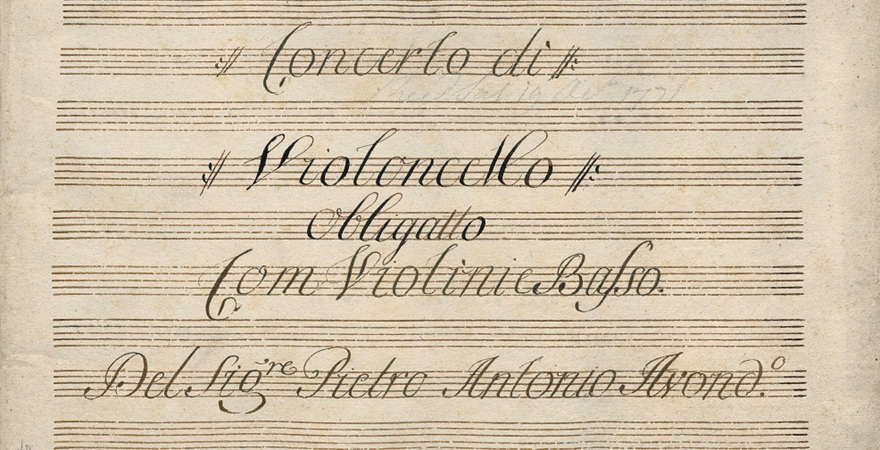 Concerto di
Violoncello
Obligatto
Com Violini e Basso.
Del Sig.re Pietro Antonio Avond.o